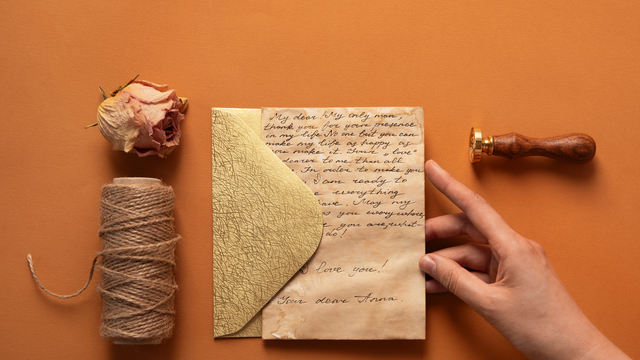 My dear! My only man,
thank you for your presence
in my life. No one but you can
make my life as happy as
you make it. Your love
dearer to me than all
. In order to make you
I am ready to
everything
. May my
s you everywhere
you are, what-
do!
I love you!
Your dear Anna.